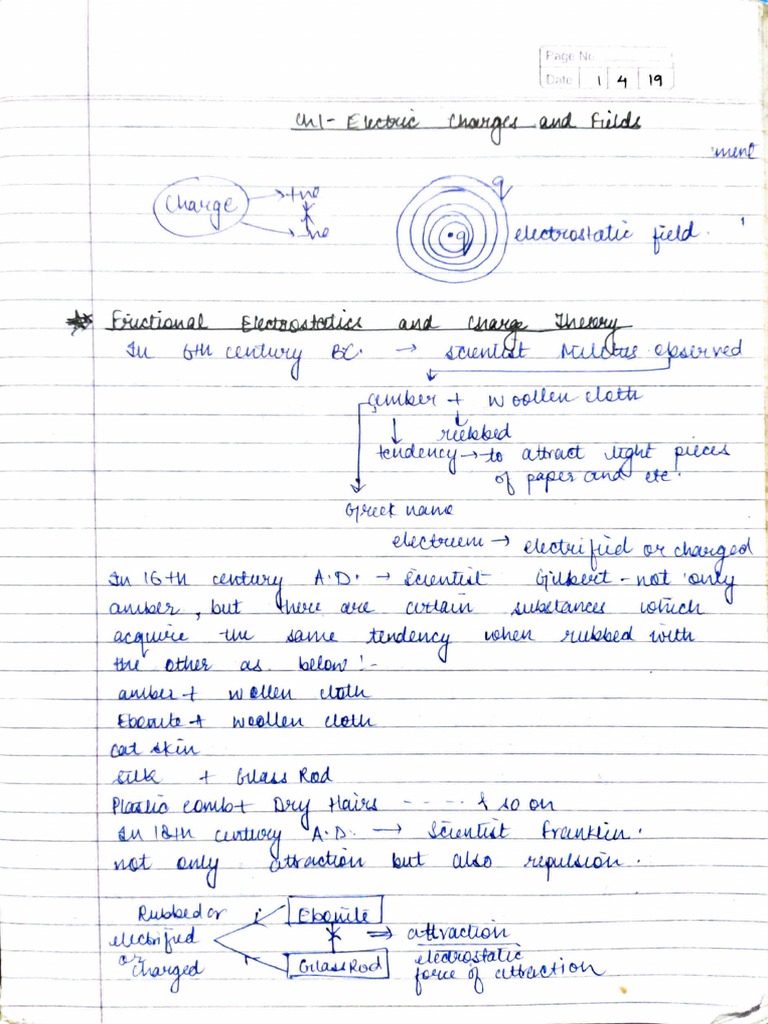 Page No.
Date 1 4 19
Ch1- Electric Charges and Fields
ment
Charge
+ve
-ve
q
q
electrostatic field.
Frictional Electrostatics and Charge Theory
In 6th century BC. → scientist Miletus observed
amber + woollen cloth
rubbed
tendency → to attract light pieces
of paper and etc.
Greek name
electrum → electrified or charged
In 16th century A.D. → scientist Gilbert - not only
amber, but there are certain substances which
acquire the same tendency when rubbed with
the other as below :-
amber + wollen cloth
Ebonite + woollen cloth
cat skin
silk + Glass Rod
Plastic comb + Dry Hairs ----- & so on
In 18th century A.D. → Scientist Franklin.
not only attraction but also repulsion.
Rubbed or
electrified
or
charged
Ebonite
Glass Rod
⇒ attraction
electrostatic
force of attraction